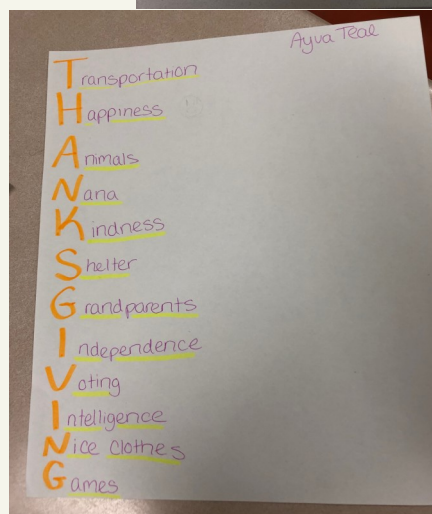 Ayva Teal
Transportation
Happiness
Animals
Nana
Kindness
Shelter
Grandparents
Independence
Voting
Intelligence
Nice clothes
Games